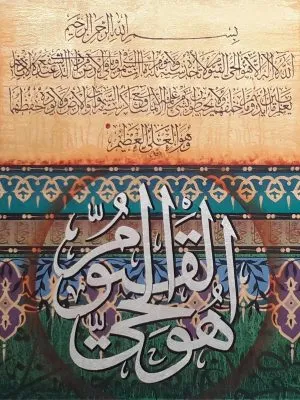 بسم الله الرحمن الرحيم
الله لا إله إلا هو الحي القيوم لا تأخذه سنة ولا نوم له ما في السموات وما في الأرض من ذا الذي يشفع عنده إلا بإذنه
يعلم ما بين أيديهم وما خلفهم ولا يحيطون بشيء من علمه إلا بما شاء وسع كرسيه السموات والأرض ولا يؤوده حفظهما
وهو العلي العظيم
هو الحي القيوم